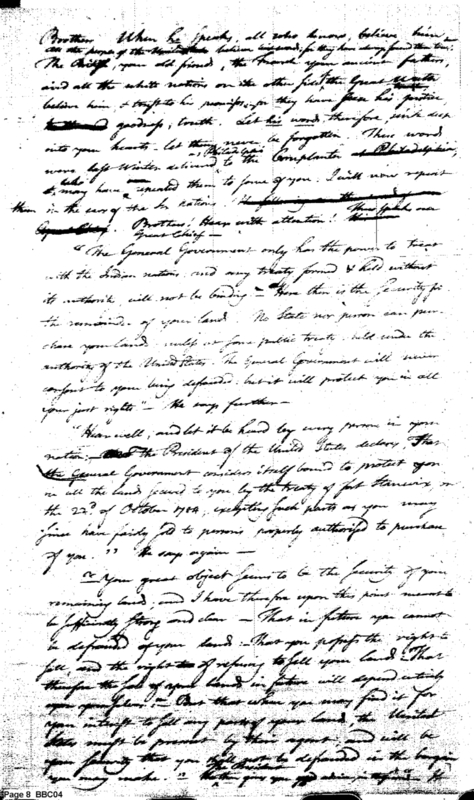 Brothers When he speaks, all who know, believe him
All the people of the United States believe for they have always found him true.
The Chiefs, your old friend, the French your ancient fathers,
and all the white nations on the other side of the Great Water
believe him, & trust to his promises, for they have his justice
goodness, truth. Let his words therefore, sink deep
into your hearts. let them never be forgotten. These words
were last Winter delivered to the Complanter at Philadelphia,
& may have repeated them to some of you. I will now repeat
them in the ears of the Six nations.
Brothers! Hear with attention! These are
Great Chief —
"The General Government only has the power to treat
with the Indian nations, and any treaty formed & held without
its authority will not be binding — Here then is the Security for
the remainder of your land. No State nor person can pur-
chase your land, unless at some public treaty held under the
authority of the United States. The General Government will never
consent to your being defrauded, but it will protect you in all
your just rights" — He says further —
"Hear well, and let it be heard by every person in your
nation, the President of the United States declares, That
the General Government considers itself bound to protect you
in all the land, secured to you by the treaty of fort Stanwix, on
the 22d of October 1784, excepting such parts as you may
since have fairly sold to persons properly authorised to purchase
of you." He says again —
"Your great object seems to be the security of your
remaining land, and I have therefore upon this point meant to
be sufficiently strong and clear — That in future you cannot
be defrauded of your land — That you possess the right to
sell, and the right of refusing to sell your land — That
therefore the sale of your land in future will depend entirely
upon yourselves — But that when you may find it for
your interest to sell any parts of your land, the United
States must be present by their agent and will be
your security that you shall not be defrauded in the bargain
you may make."
Page 8 BBC04